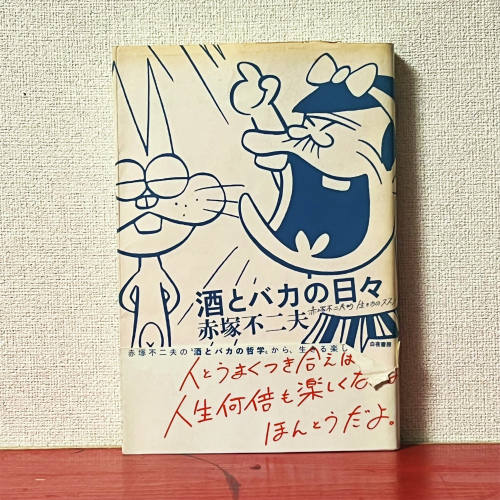 酒とバカの日々
赤塚不二夫的生き方のススメ
赤塚不二夫
白夜書房
赤塚不二夫の〝酒とバカの哲学〟から、生きる楽し
人とうまくつき合えば
人生何倍も楽しくな
ほんとうだよ。